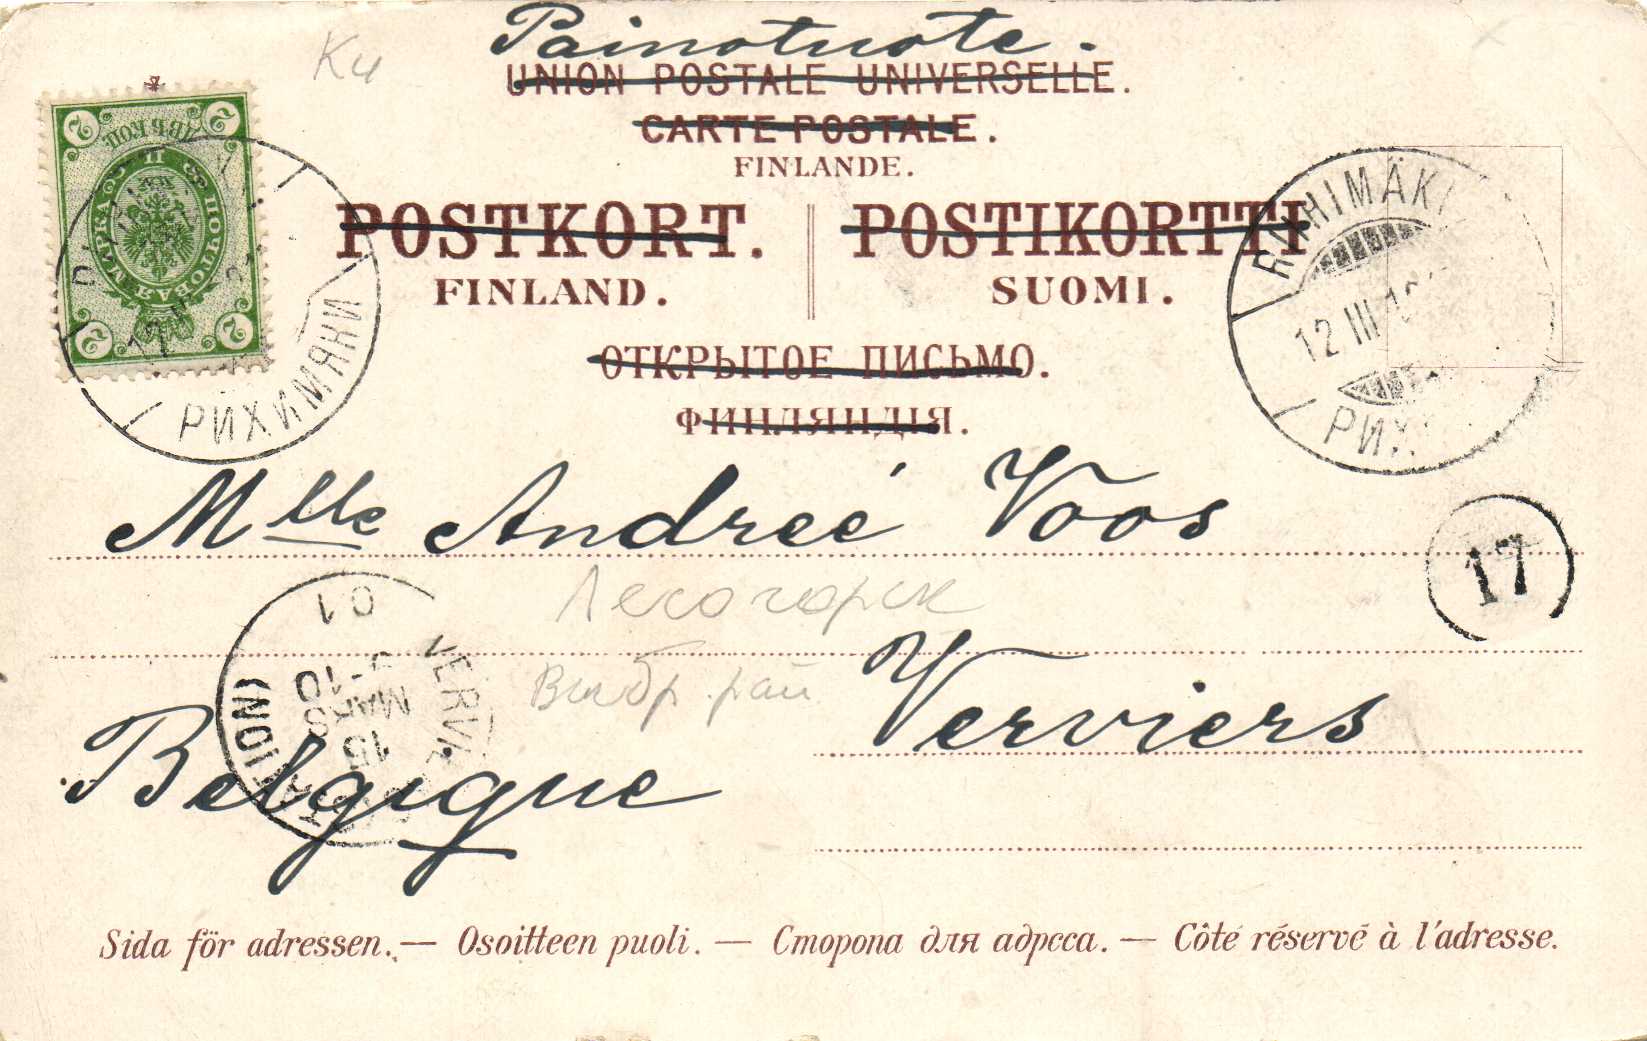 Painotuote.
Ки
UNION POSTALE UNIVERSELLE.
CARTE POSTALE.
FINLANDE.
POSTKORT. POSTIKORTTI
FINLAND. SUOMI.
ОТКРЫТОЕ ПИСЬМО.
ФИНЛЯНДІЯ.
2 ДВѢ КОП. 2
ПОЧТОВАЯ МАРКА
2 2
РИХИМЯКИ
RIIHIMÄKI
12 III
РИХ
17
Mlle Andreé Voos
Лесогорск
Выбр. рай
Verviers
Belgique
VERVIE
(STATION)
15
MARS
-10
01
Sida för adressen. — Osoitteen puoli. — Сторона для адреса. — Côté réservé à l'adresse.